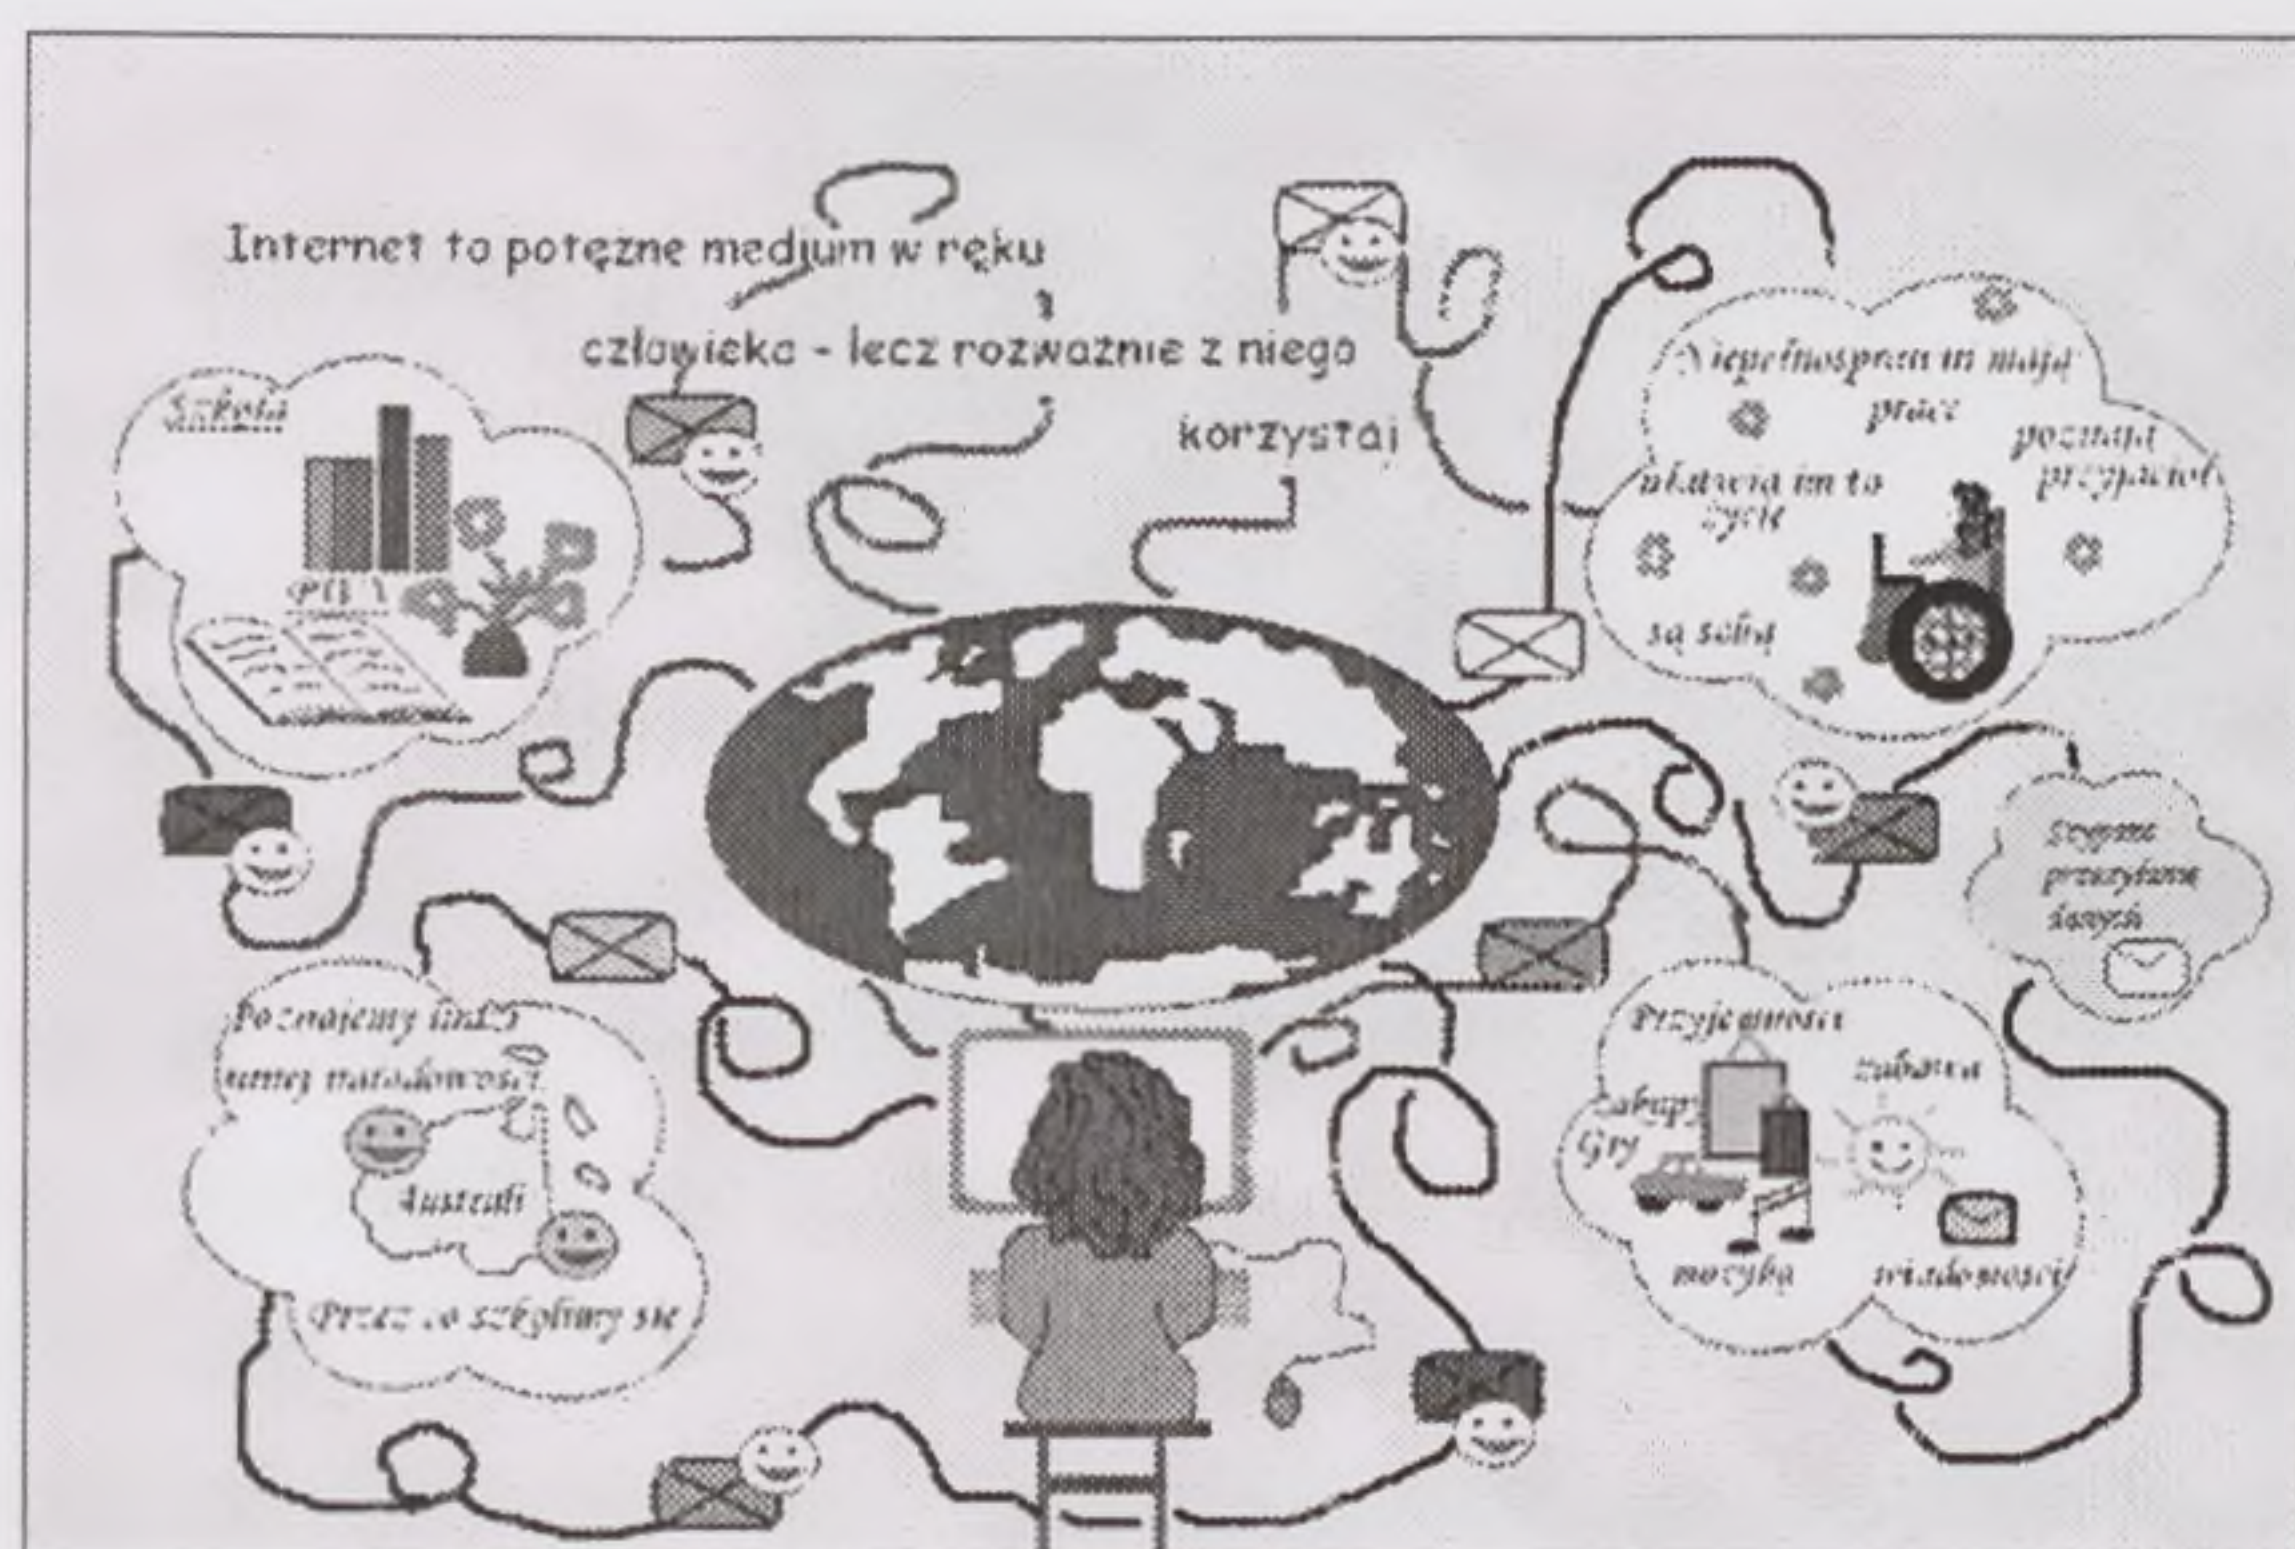 Internet to potęzne medium w ręku
człowieka - lecz rozważnie z niego
korzystaj
Szkoła
Niepełnosprawni mają
pracę
poznają
przyjaciół
ułatwia im to
życie
są sobą
przesyłanie
danych
Poznajemy ludzi
innej narodowości
Australi
Przez co szkolimy się
Przyjemności
zabawa
zakupy
Gry
muzyka
wiadomości